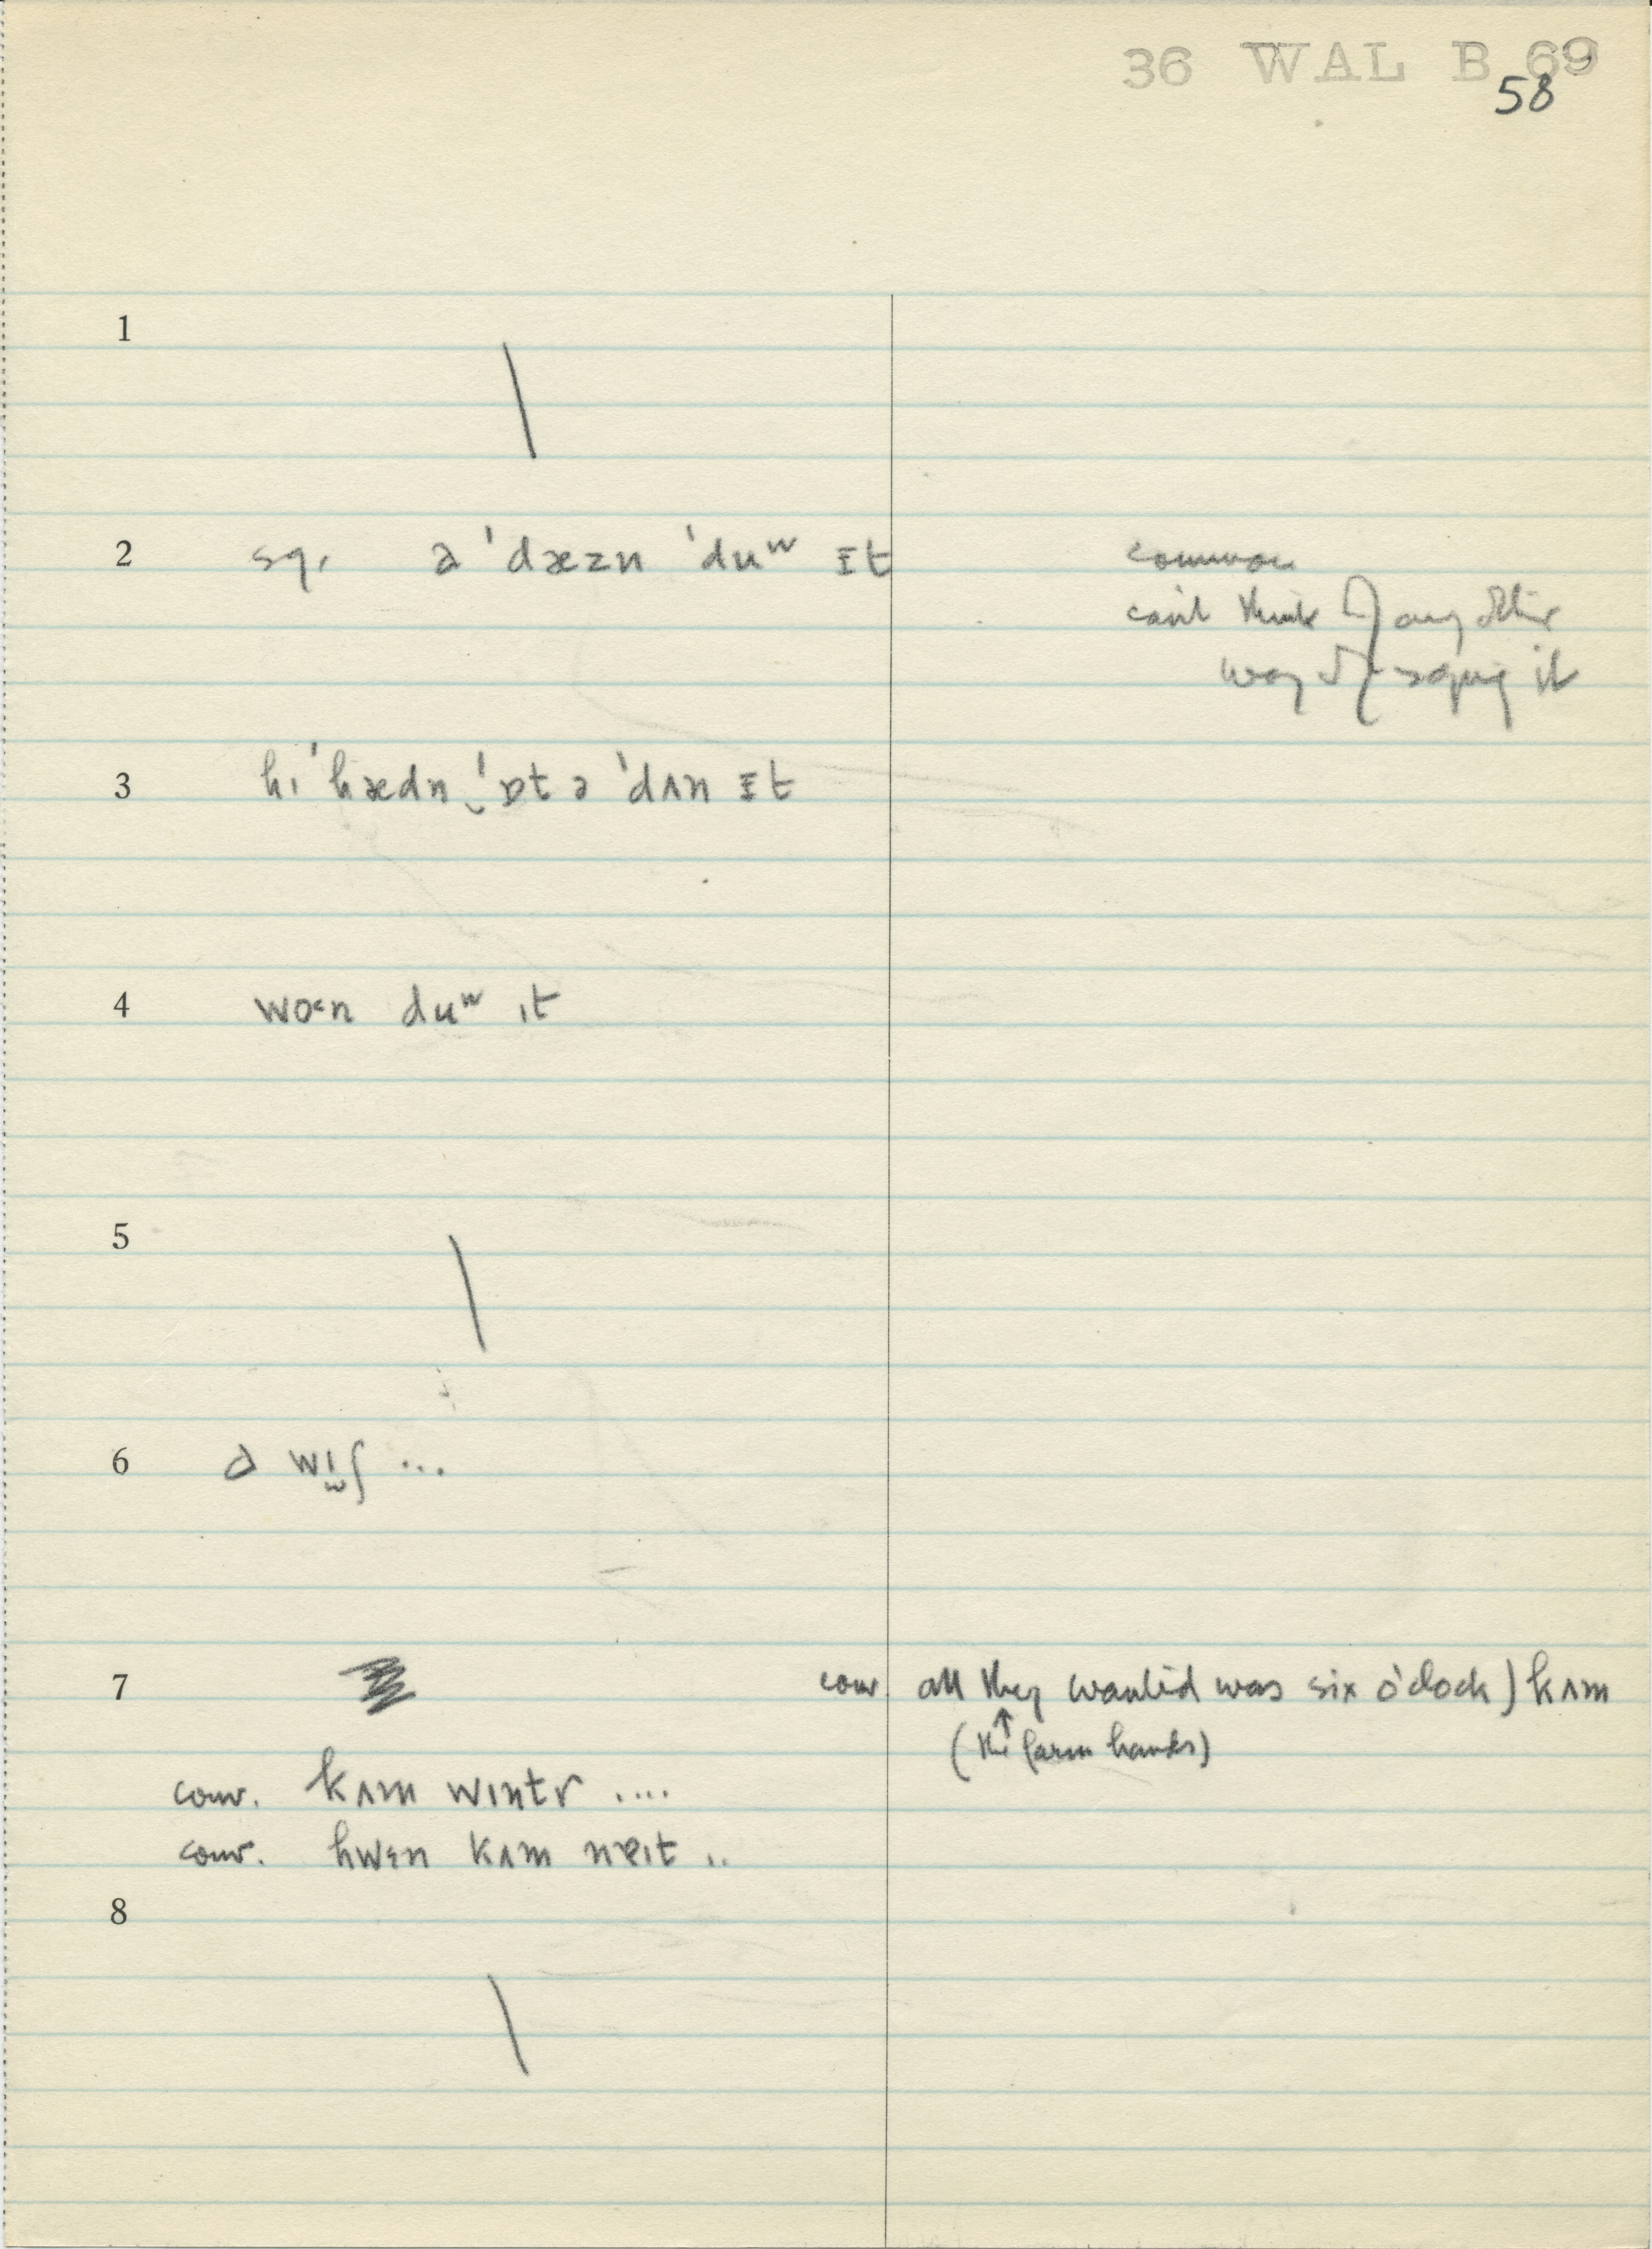 36 WAL B 69
58
1
2 sq. ə ˈdæzn ˈduʷ ɪt common
can't think of any other
way of saying it
3 hɪ ˈhædn ˈɒt ə ˈdʌn ɪt
4 wo˂n duʷ ɪt
5
6 ə wɪʃ ...
7 conv. all they wanted was six o'clock) kʌm
↑
(the farm hands)
conv. kʌm wɪntr ....
conv. hwɛn kʌm nɐɪt ..
8